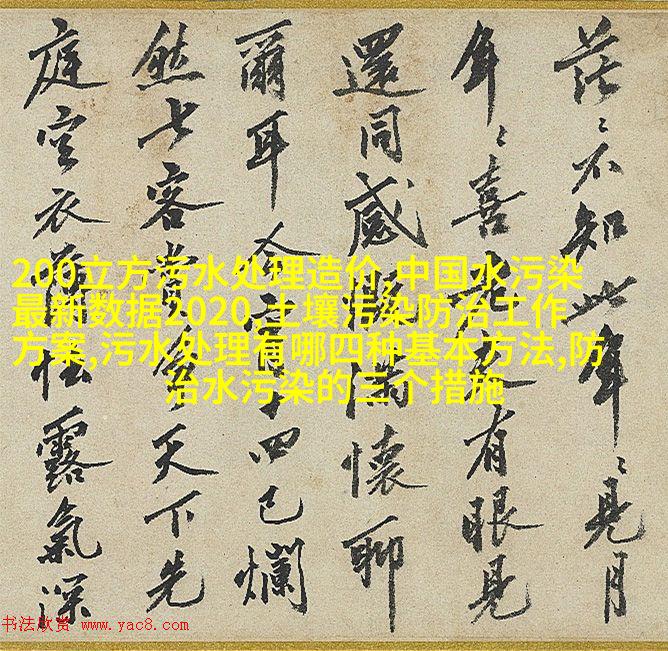 茫〻不知此年〻見月
年〻喜有眼見
還同感慨滿懷聊
爾耳今宵十四已爛
然七客當天下先
庭空衣薄怯露氣深
200立方污水处理造价,中国水污染
最新数据2020,土壤污染防治工作
方案,污水处理有哪四种基本方法,防
治水污染的三个措施
书法欣赏 www.yac8.com